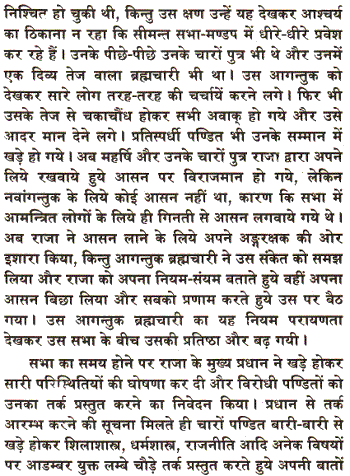 निश्चित हो चुकी थी, किन्तु उस क्षण उन्हें यह देखकर आश्चर्य
का ठिकाना न रहा कि सीमन्त सभा-मण्डप में धीरे-धीरे प्रवेश
कर रहे हैं। उनके पीछे-पीछे उनके चारों पुत्र भी थे और उनमें
एक दिव्य तेज वाला ब्रह्मचारी भी था। उस आगन्तुक को
देखकर सारे लोग तरह-तरह की चर्चायें करने लगे। फिर भी
उसके तेज से चकाचौंध होकर सभी अवाक् हो गये और उसे
आदर मान देने लगे। प्रतिस्पर्धी पण्डित भी उनके सम्मान में
खड़े हो गये। अब महर्षि और उनके चारों पुत्र राजा द्वारा अपने
लिये रखवाये हुये आसन पर विराजमान हो गये, लेकिन
नवांगन्तुक के लिये कोई आसन नहीं था, कारण कि सभा में
आमन्त्रित लोगों के लिये ही गिनती से आसन लगवाये गये थे।
अब राजा ने आसन लाने के लिये अपने अङ्गरक्षक की ओर
इशारा किया, किन्तु आगन्तुक ब्रह्मचारी ने उस संकेत को समझ
लिया और राजा को अपना नियम-संयम बताते हुये वहीं अपना
आसन बिछा लिया और सबको प्रणाम करते हुये उस पर बैठ
गया। उस आगन्तुक ब्रह्मचारी का यह नियम परायणता
देखकर उस सभा के बीच उसकी प्रतिष्ठा और बढ़ गयी।
सभा का समय होने पर राजा के मुख्य प्रधान ने खड़े होकर
सारी परिस्थितियों की घोषणा कर दी और विरोधी पण्डितों को
उनका तर्क प्रस्तुत करने का निवेदन किया। प्रधान से तर्क
आरम्भ करने की सूचना मिलते ही चारों पण्डित बारी-बारी से
खड़े होकर शिलाशास्त्र, धर्मशास्त्र, राजनीति आदि अनेक विषयों
पर आडम्बर युक्त लम्बे चौड़े तर्क प्रस्तुत करते हुये अपनी बातों